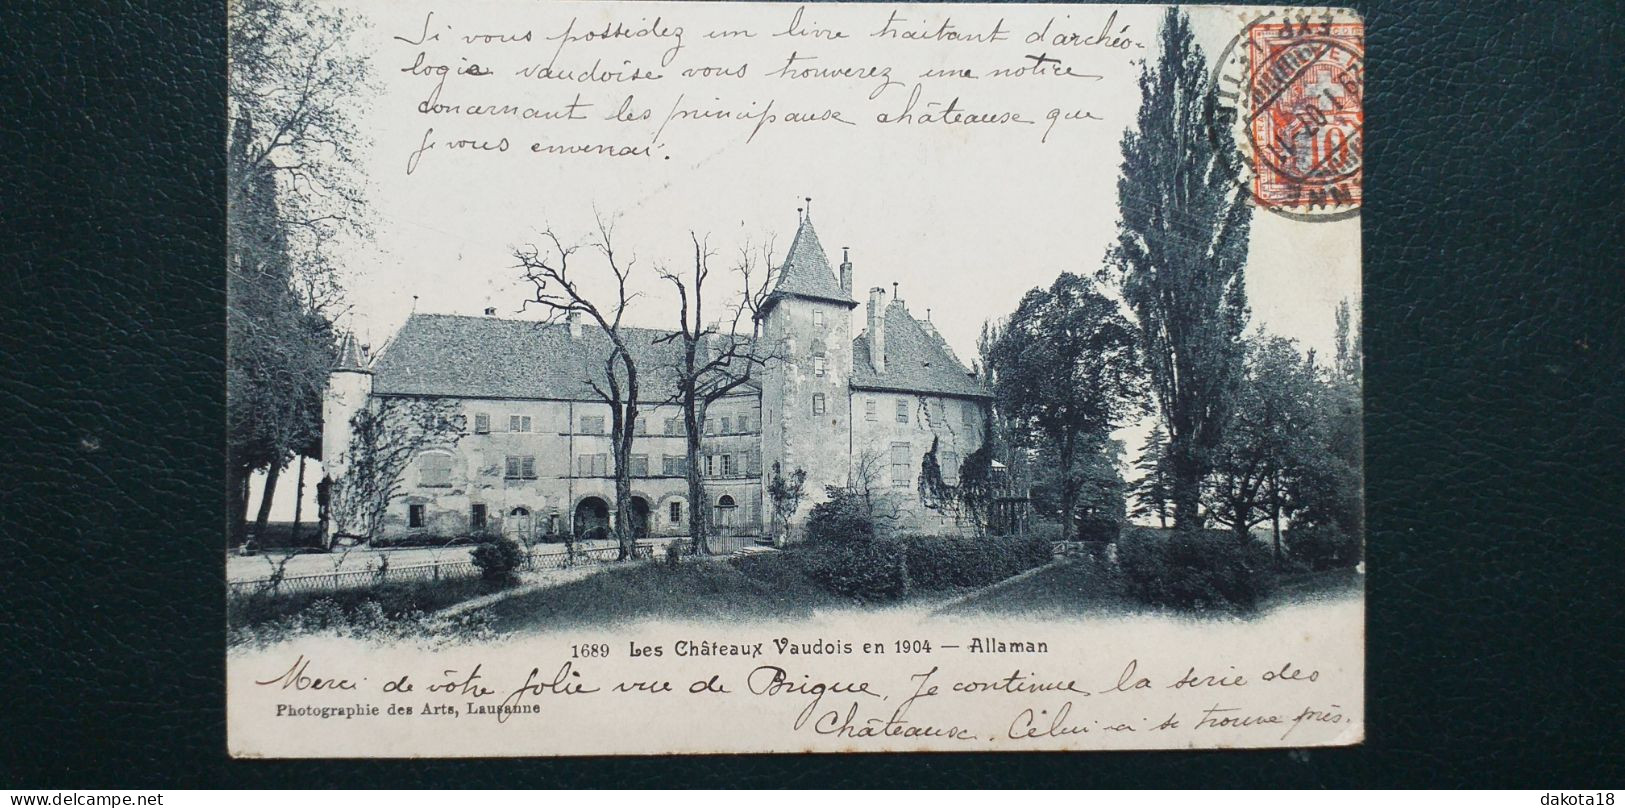 Si vous possidez un livre traitant d'archéo-
logie vaudoise vous trouverez une notice
concernant les principaux châteaux que
je vous enverrai.
EXP. LET
HELVETIA
10
1689 Les Châteaux Vaudois en 1904 — Allaman
Merci de vôtre jolie vue de Brigue. Je continue la serie des
Photographie des Arts, Lausanne
Châteaux. Celui-ci se trouve près.
dakota18